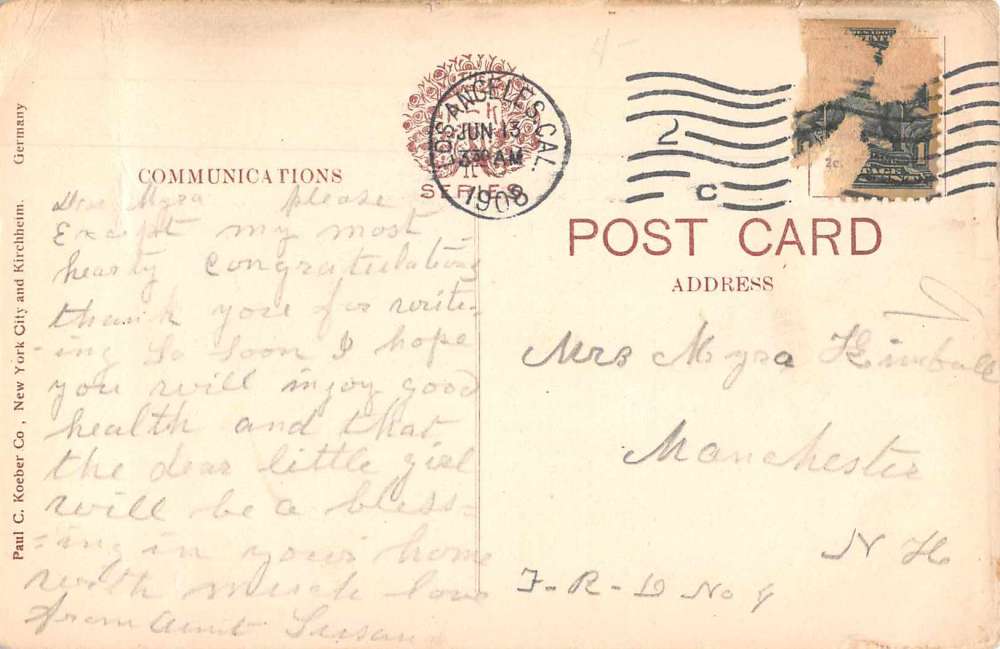 Paul C. Koeber Co., New York City and Kirchheim. Germany
COMMUNICATIONS
Dear Myra please
Except my most
hearty Congratulations
thank you for write-
-ing So Soon I hope
you will injoy good
health and that
the dear little girl
will be a bless-
-ing in your home
with much love
from Aunt Susan
SERIES
LOS ANGELES, CAL.
JUN 13
330 AM
1908
2
C
2c.
1
POST CARD
ADDRESS
Mrs Myra Kimball
Manchester
N H
F-R-D No 4